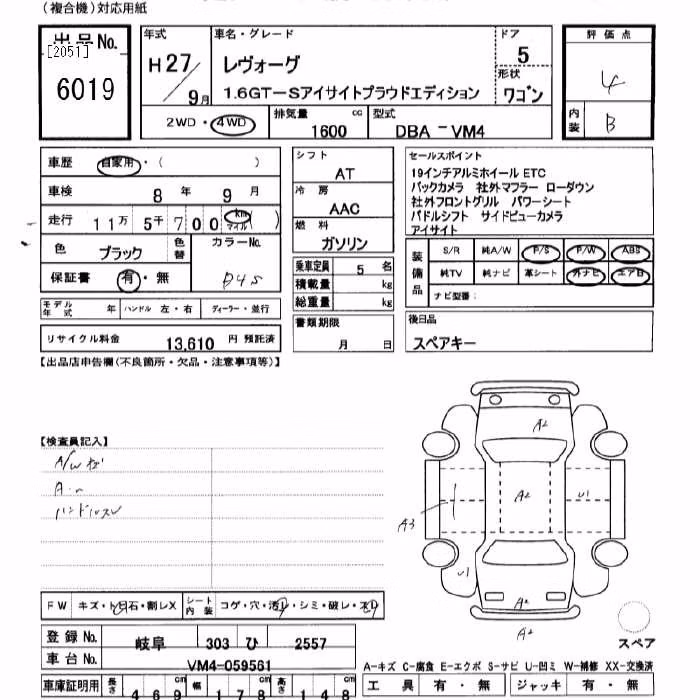 （複合機）対応用紙
出品No.
[2051]
6019
年式
H27/9月
車名・グレード
レヴォーグ
1.6GT－Sアイサイトプラウドエディション
ドア
5
形状
ワゴン
評価点
4
内装
B
2WD・4WD
排気量
1600 cc
型式
DBA－VM4
車歴 自家用・（ ）
車検 8 年 9 月
走行 11万 5千 700 km マイル ( )
色 ブラック 色替
カラーNo.
D4S
保証書 有・無
モデル年式 年 ハンドル 左・右 ディーラー・並行
リサイクル料金 13,610 円 預託済
シフト
AT
冷房
AAC
燃料
ガソリン
乗車定員 5 名
積載量 kg
総重量 kg
書類期限
月 日
セールスポイント
19インチアルミホイール ETC
バックカメラ 社外マフラー ローダウン
社外フロントグリル パワーシート
パドルシフト サイドビューカメラ
アイサイト
装備品
S/R 純A/W P/S P/W ABS
純TV 純ナビ 革シート 外ナビ エアB
ナビ型番：
後日品
スペアキー
【出品店申告欄（不良箇所・欠品・注意事項等）】
【検査員記入】
A/W
ハンドルスレ
A2
A2
U1
A3
U1
A2
A2
スペア
FW キズ・ト石・割レX
シート内装 コゲ・穴・汚レ・シミ・破レ・スレ
登録No. 岐阜 303 ひ 2557
車台No. VM4-059561
車庫証明用 長さ 469 cm 幅 178 cm 高さ 148 cm
A-キズ C-腐食 E-エクボ S-サビ U-凹ミ W-補修 XX-交換済
工具 有・無 ジャッキ 有・無